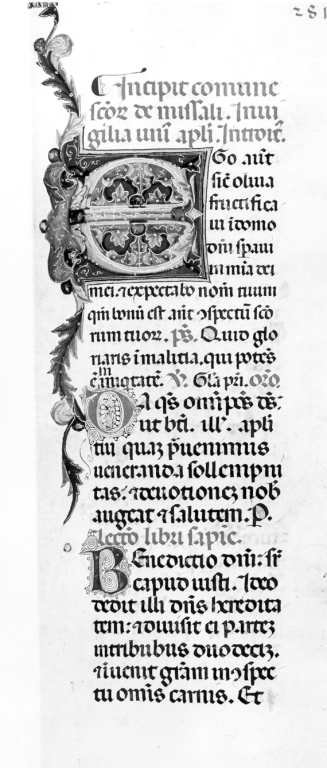 281
Incipit comune
scoꝝ de missali. In ui
gilia uni᾽ apli. Introit᾽.
EGo aūt
sic̄ oliua
fructifica
ui ī domo
dn̄i spaui
in mīa dei
mei. ⁊ expectabo nom̄ tuum
qm̄ bonū est añt ꝯspectū scō
rum tuoꝝ. ps̄. Quid glo
riaris ī malitia, qui potēs
es in iniqtatē. V̄. Gła pri. Oro.
DA qs̄ omp̄s ds̄:
ut bt̄i. ill'. apli
tui quā p̄uenimus
ueneranda sollempni
tas: ⁊ deuotionē nob̄
augeat ⁊ salutem. P.
lectio libri sapie.
BEnedictio dn̄i: sr̄
caput iusti. Ideo
dedit illi dn̄s heredita
tem: ⁊ diuisit ei partē
in tribubus duodecī.
⁊ īuenit grām in ꝯspec
tu om̄is carnis. Et